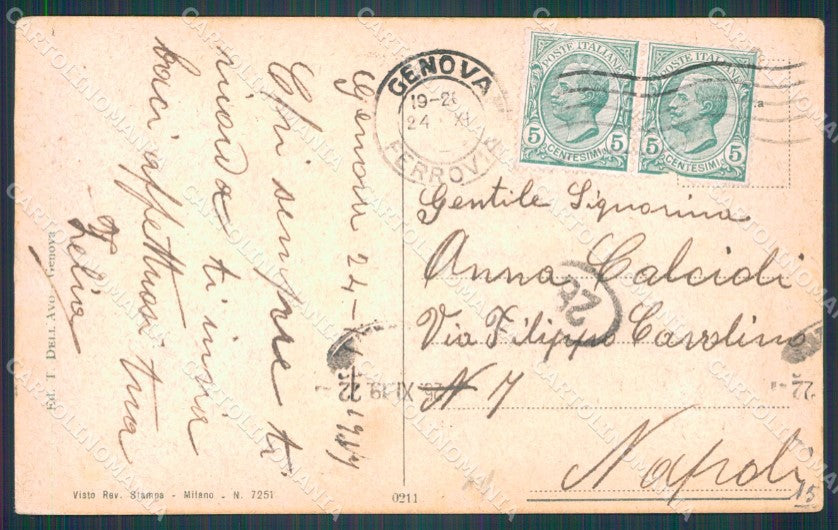 Genova 24-XI 1919
Chi sempre ti
ricorda ti invia
baci affettuosi tua
Zelia
Ed. I. Dell'Avo - Genova
Visto Rev. Stampa - Milano - N. 7251
0211
GENOVA
19-20
24 XI
FERROVIA
POSTE ITALIANE
5 5
CENTESIMI
POSTE ITALIANE
5 5
CENTESIMI
Gentile Signorina
Anna Calcidi
Via Filippo Cavolino
N 7
Napoli
15
26. XI. 19. 22
22
CARTOLINOMANIA